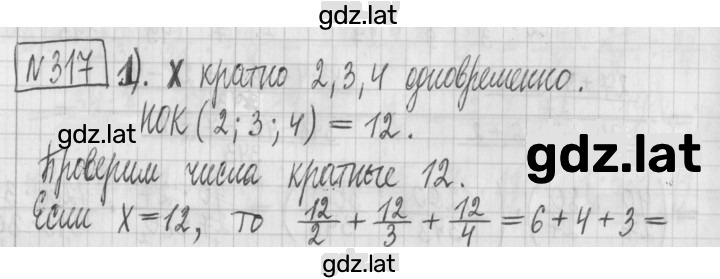 gdz.lat
N 317 1). X кратно 2, 3, 4 одновременно.
НОК (2; 3; 4) = 12.
gdz.lat
gdz.lat
Проверим числа кратные 12.
Если X = 12, то 12/2 + 12/3 + 12/4 = 6 + 4 + 3 =
gdz.lat